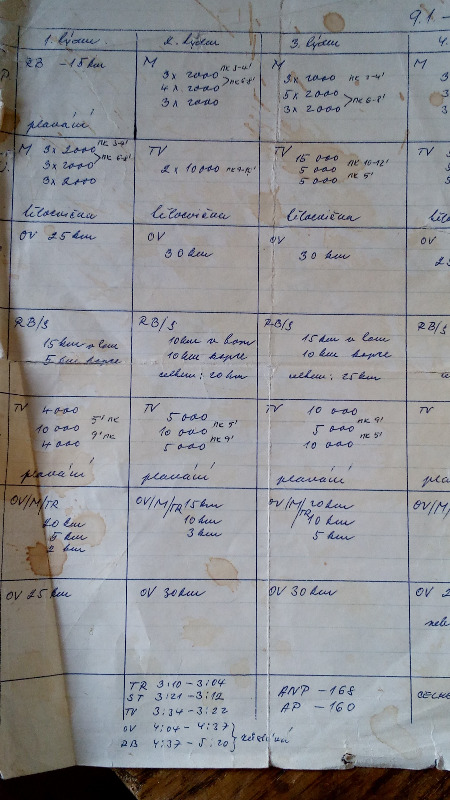 9.1 -
1. týden 2. týden 3. týden 4.
RB - 15 km
plavání
M
3x 2000 MK 3-4'
4x 2000 > MK 6-8'
3x 2000
M
3x 2000 MK 3-4'
5x 2000 > MK 6-8'
3x 2000
M
M 3x 2000 MK 3-4'
3x 2000 > MK 6-8'
3x 2000
tělocvična
TV
2x 10000 MK 9-12'
tělocvična
TV
15 000 MK 10-12'
5 000
5 000 MK 5'
tělocvična
TV
OV 25 km
OV
30 km
OV
30 km
OV
RB/S
15 km v
5 km kopce
RB/S
10 km v
10 km kopce
celkem: 20 km
RB/S
15 km v
10 km kopce
celkem: 25 km
RB/
TV 4000
10 000 5' MK
4000 9' MK
plavání
TV
5 000
10 000 MK 5'
5 000 MK 9'
plavání
TV 10 000
5 000 MK 9'
10 000 MK 5'
plavání
TV
OV/M/TR
20 km
5 km
2 km
OV/M/TR 15 km
10 km
3 km
OV/M/TR 20 km
10 km
5 km
OV/M/
OV 25 km
OV 30 km
OV 30 km
OV 2
TR 3:10 - 3:04
ST 3:21 - 3:12
TV 3:34 - 3:22
OV 4:04 - 4:37
RB 4:37 - 5:20
ANP - 168
AP - 160